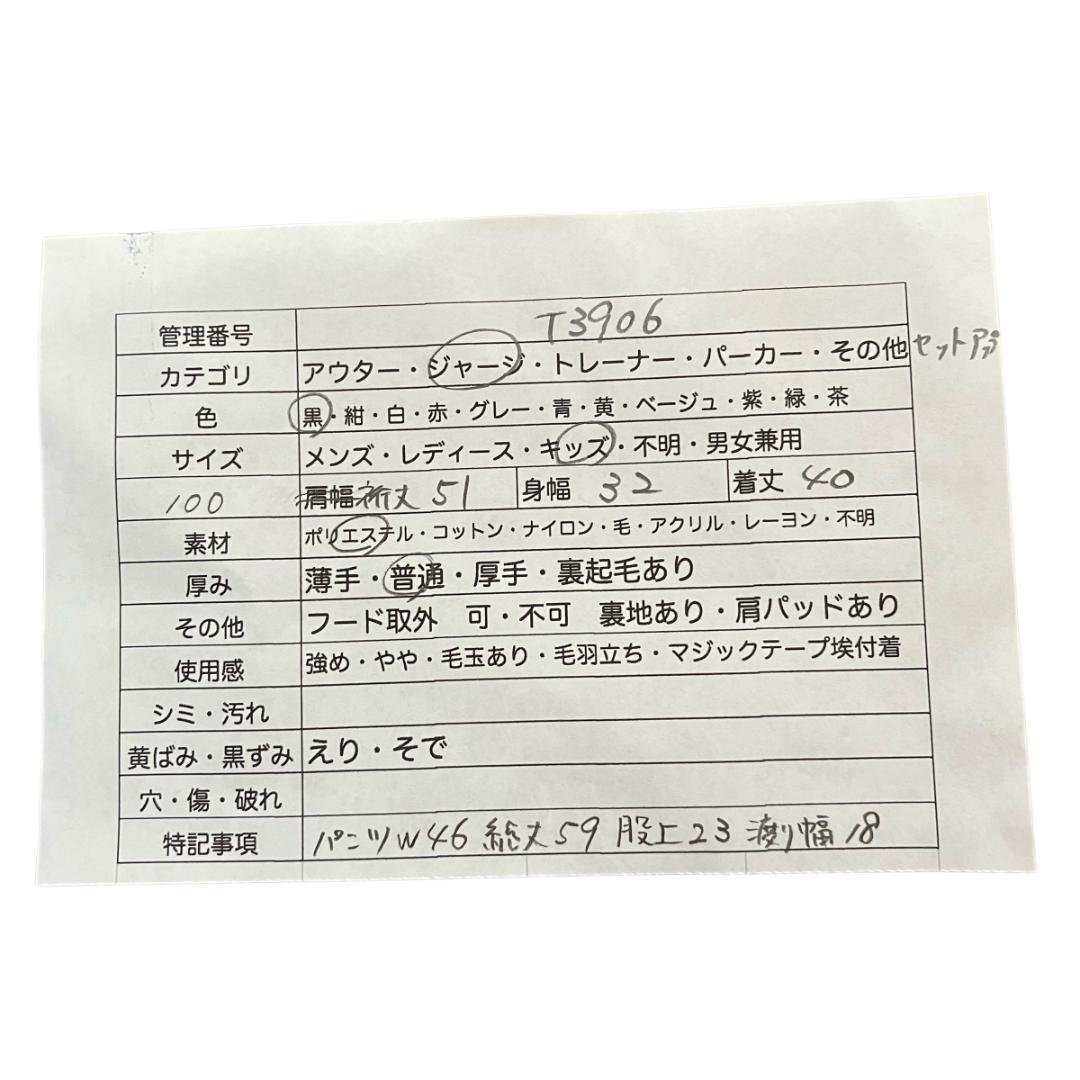 管理番号 T3906
カテゴリ アウター・ジャージ・トレーナー・パーカー・その他 セットアップ
色 黒・紺・白・赤・グレー・青・黄・ベージュ・紫・緑・茶
サイズ メンズ・レディース・キッズ・不明・男女兼用
100 肩幅 裄丈 51 身幅 32 着丈 40
素材 ポリエステル・コットン・ナイロン・毛・アクリル・レーヨン・不明
厚み 薄手・普通・厚手・裏起毛あり
その他 フード取外 可・不可 裏地あり・肩パッドあり
使用感 強め・やや・毛玉あり・毛羽立ち・マジックテープ埃付着
シミ・汚れ
黄ばみ・黒ずみ えり・そで
穴・傷・破れ
特記事項 パンツW46 総丈59 股上23 渡り幅18